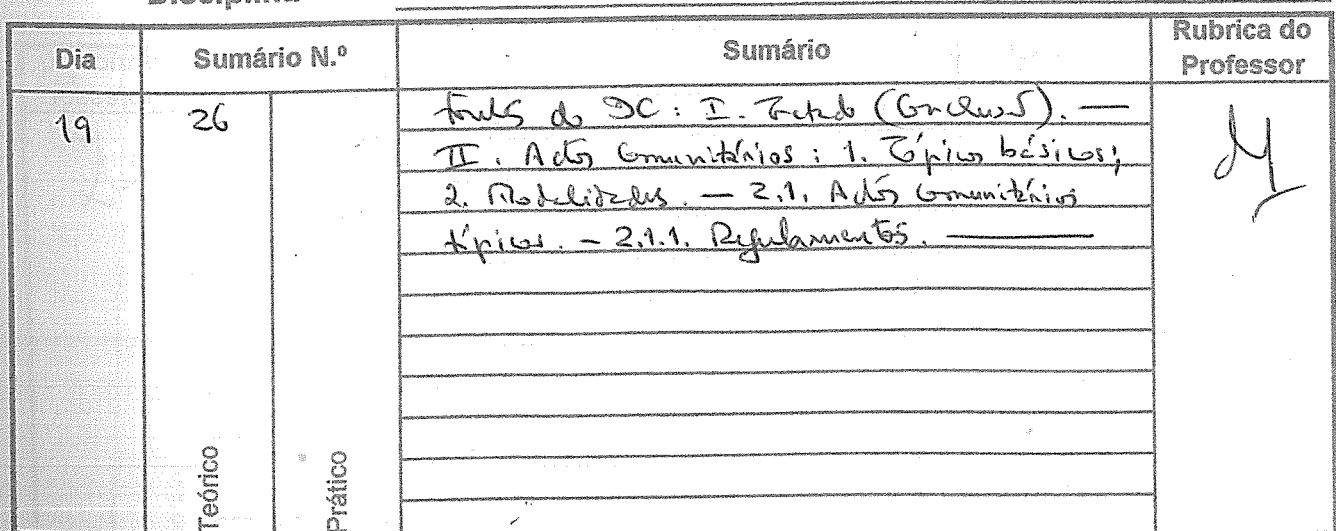 Disciplina
Dia
Sumário N.º
Sumário
Rubrica do
Professor
19
26
Fontes do DC: I. Tratado (Conclusão). —
II. Actos Comunitários: 1. Tópicos básicos;
2. Modalidades. — 2.1. Actos Comunitários
típicos. — 2.1.1. Regulamentos. —
Teórico
Prático